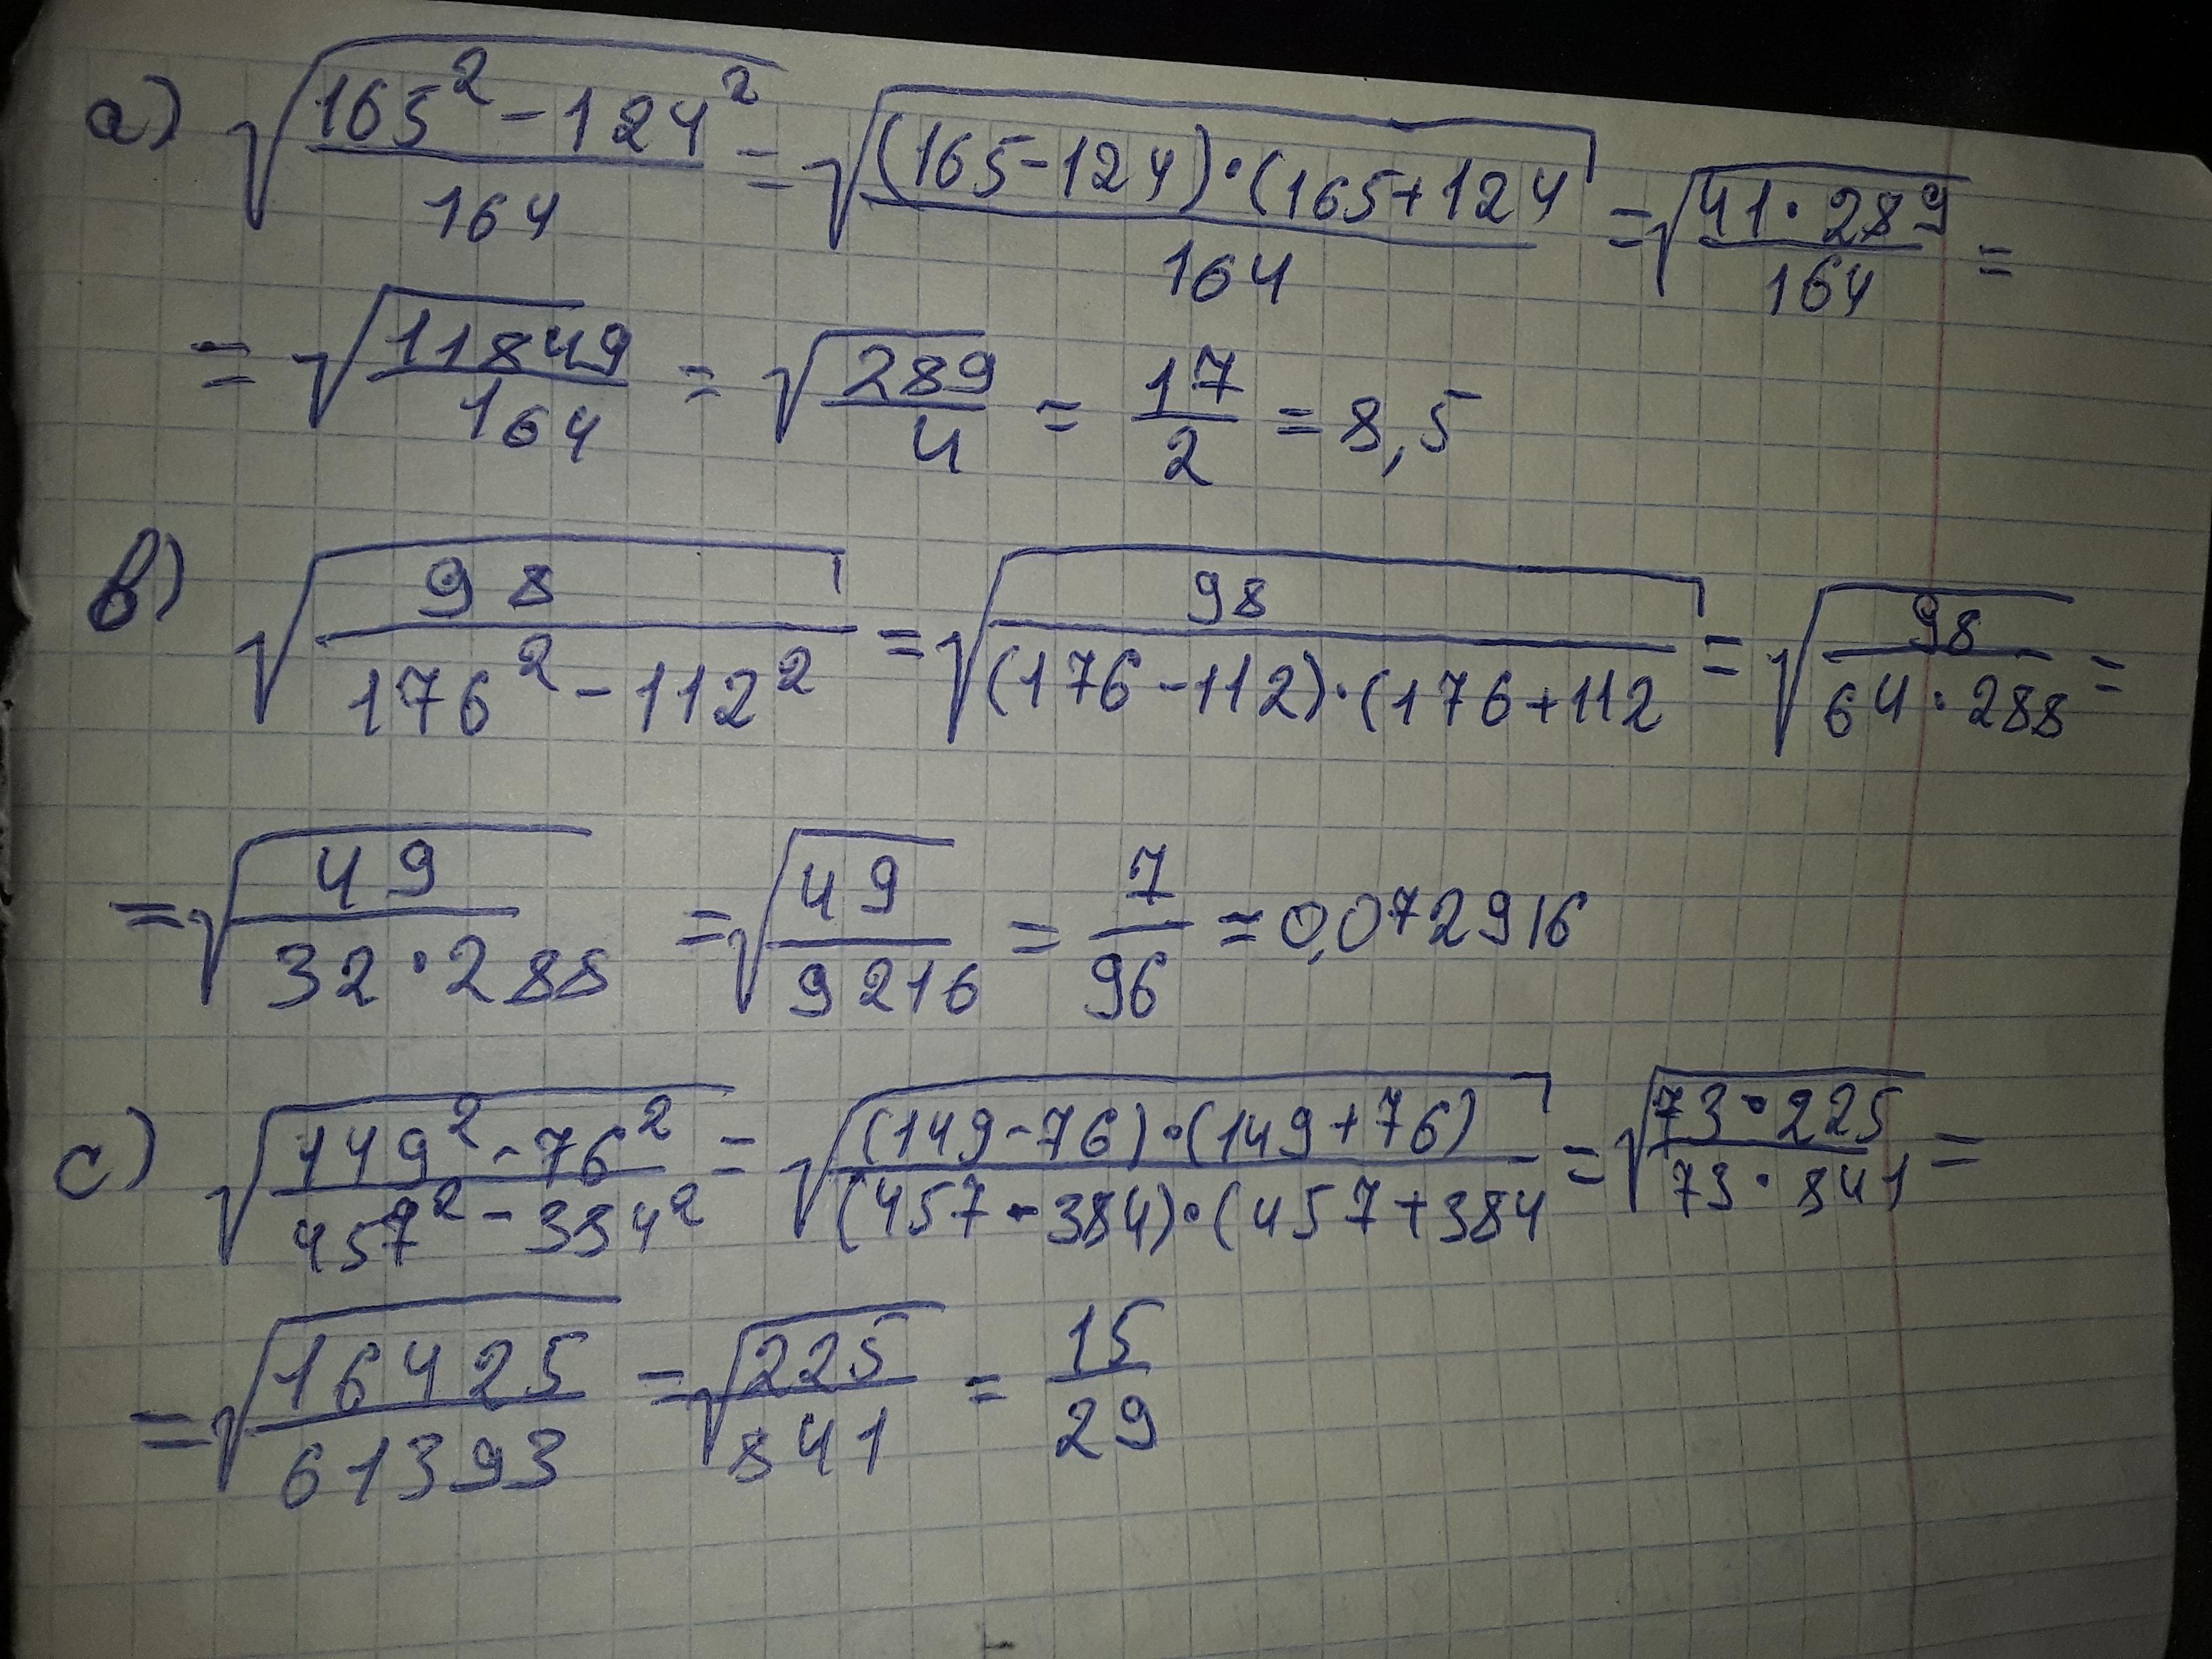 a) √(165² - 124² / 164) = √((165-124)·(165+124 / 164) = √(41·289 / 164) =
= √(11849 / 164) = √(289 / 4) = 17/2 = 8,5
b) √(98 / 176² - 112²) = √(98 / (176-112)·(176+112) = √(98 / 64·288) =
= √(49 / 32·288) = √(49 / 9216) = 7/96 = 0,072916
c) √(149² - 76² / 457² - 384²) = √((149-76)·(149+76) / (457-384)·(457+384) = √(73·225 / 73·841) =
= √(16425 / 61393) = √(225 / 841) = 15/29